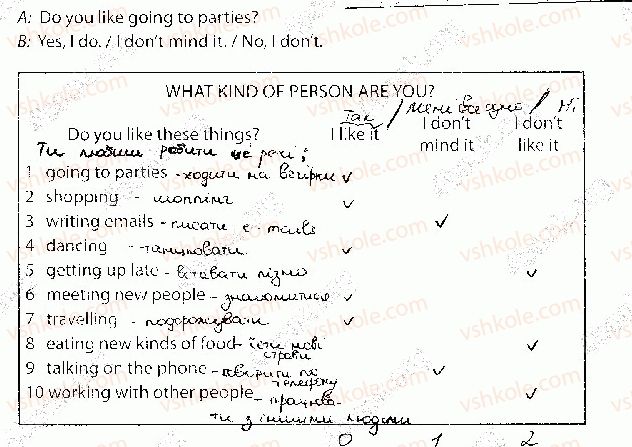 A: Do you like going to parties?
B: Yes, I do. / I don't mind it. / No, I don't.
WHAT KIND OF PERSON ARE YOU?
Так / мені все одно / Ні
Do you like these things? I like it I don't mind it I don't like it
Ти любиш робити ці речі?
1 going to parties - ходити на вечірки ✓
2 shopping - шоппінг ✓
3 writing emails - писати e-mails ✓
4 dancing - танцювати ✓
5 getting up late - вставати пізно ✓
6 meeting new people - знайомитися ✓
7 travelling - подорожувати ✓
8 eating new kinds of food - їсти нові страви ✓
9 talking on the phone - говорити по телефону ✓
10 working with other people - працювати з іншими людьми ✓
0 1 2
vshkole.com